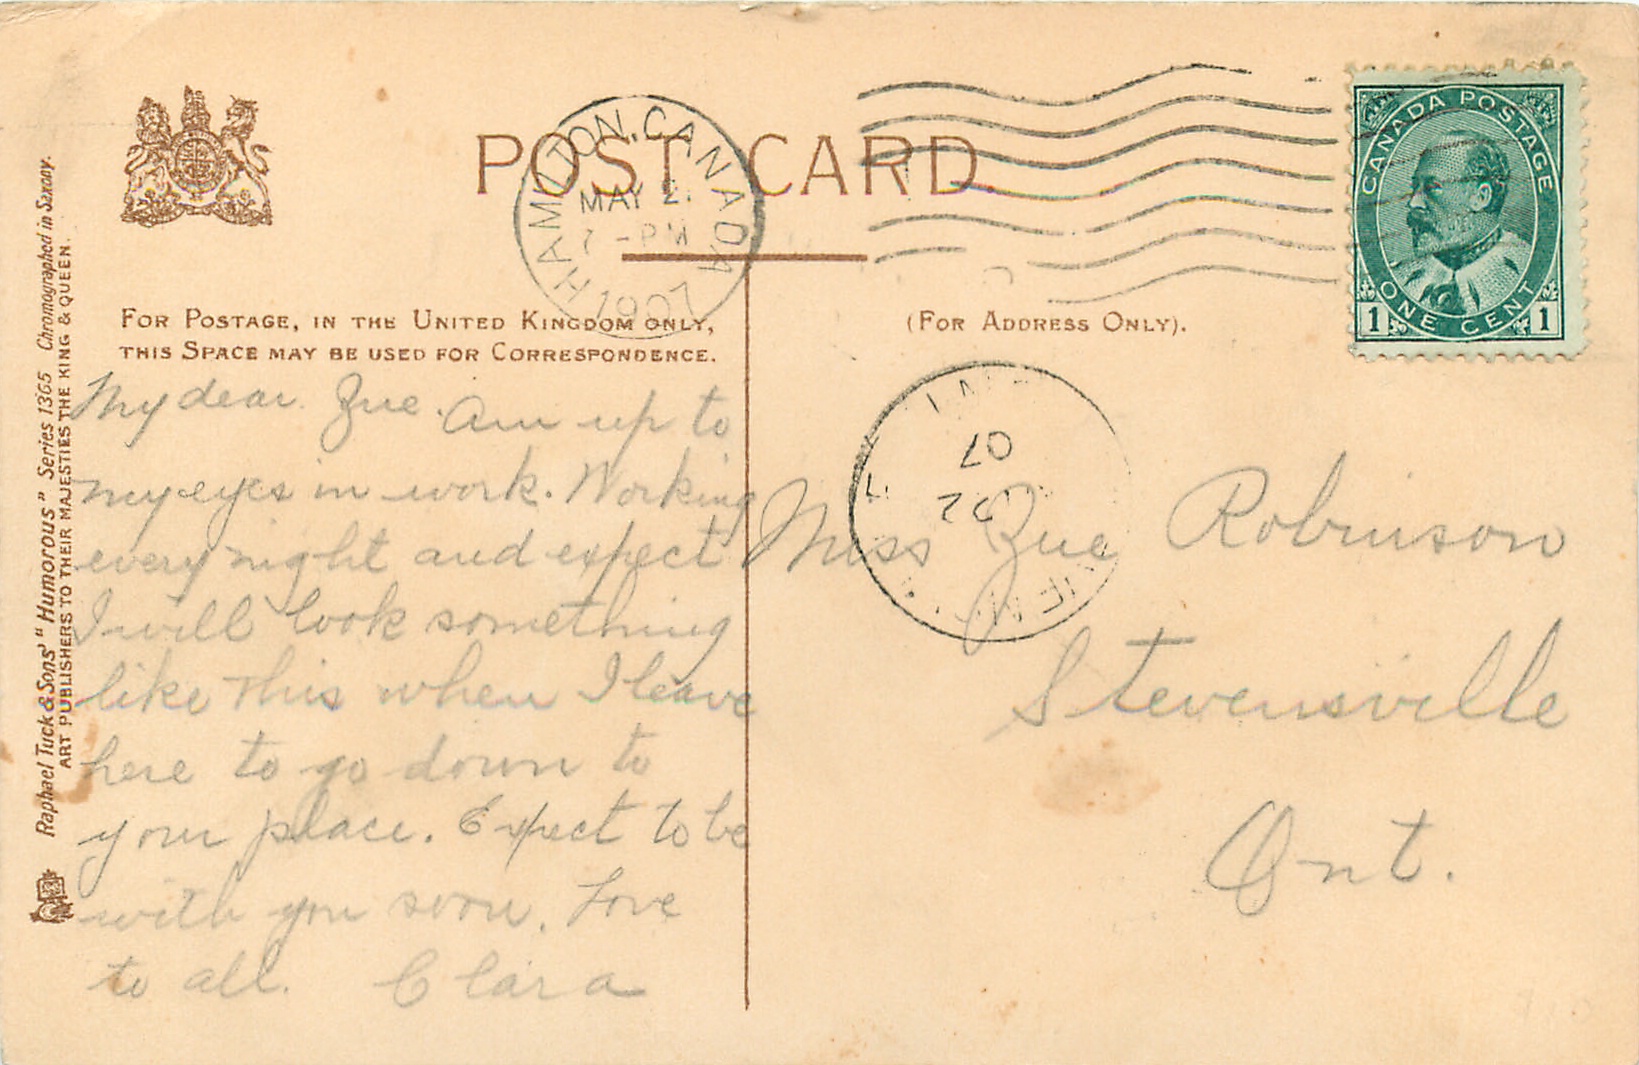 POST CARD
HAMILTON, CANADA
MAY 2
7 - PM
1907
CANADA POSTAGE
ONE CENT
1 1
FOR POSTAGE, IN THE UNITED KINGDOM ONLY,
THIS SPACE MAY BE USED FOR CORRESPONDENCE.
(FOR ADDRESS ONLY).
Raphael Tuck & Sons' "Humorous" Series 1365 Chromographed in Saxony.
ART PUBLISHERS TO THEIR MAJESTIES THE KING & QUEEN.
My dear Zue. Am up to
my eyes in work. Working
every night and expect
I will look something
like this when I leave
here to go down to
your place. Expect to be
with you soon. Love
to all. Clara
22
07
Miss Zue Robinson
Stevensville
Ont.